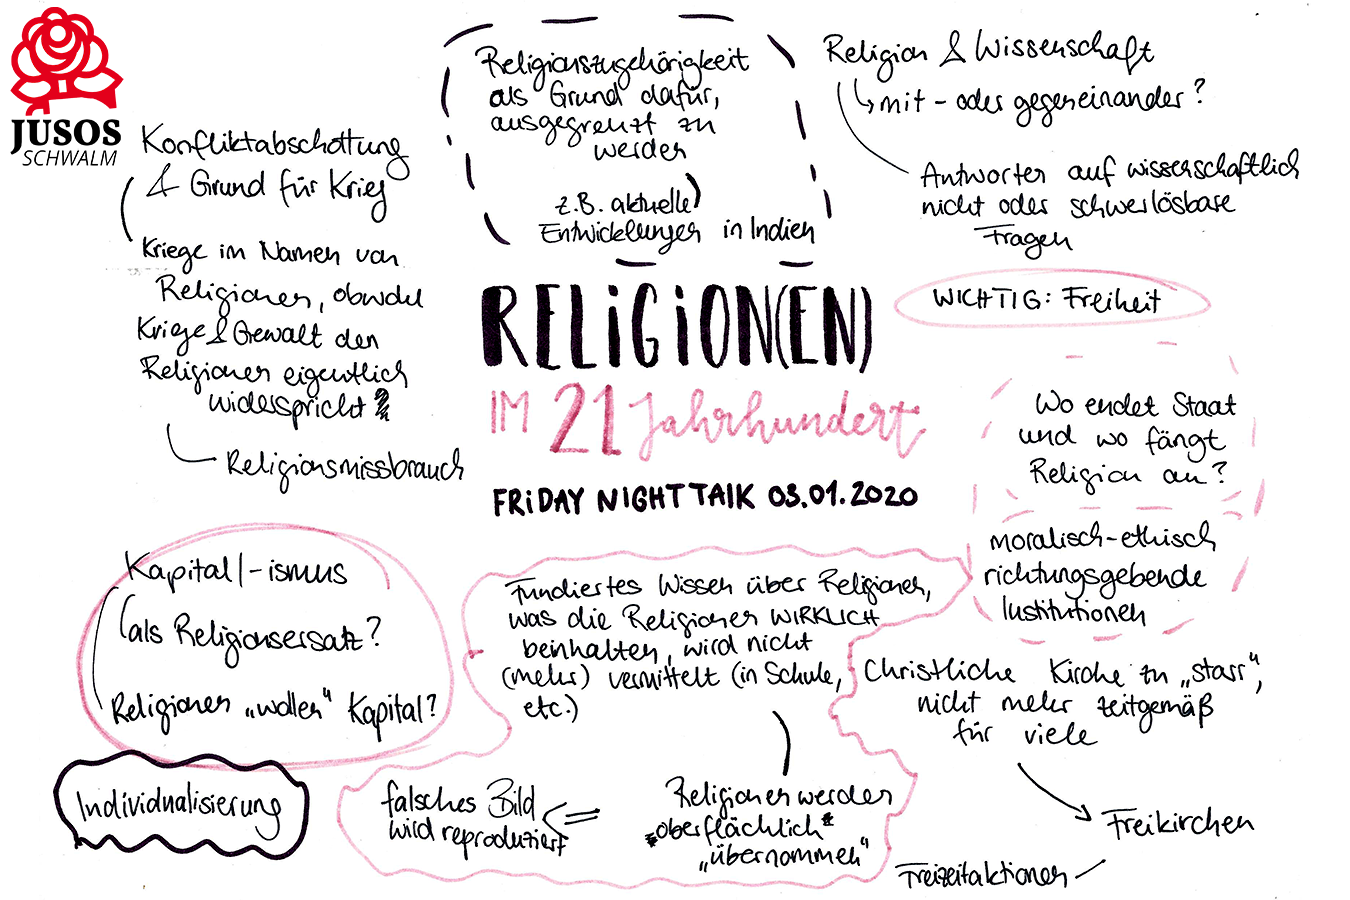 JUSOS
SCHWALM
Konfliktabschottung
& Grund für Krieg
Kriege im Namen von
Religionen, obwohl
Kriege & Gewalt den
Religionen eigentlich
widerspricht
Religionsmissbrauch
Religionszugehörigkeit
als Grund dafür,
ausgegrenzt zu
werden
z.B. aktuelle
Entwicklungen in Indien
Religion & Wissenschaft
mit- oder gegeneinander?
Antworten auf wissenschaftlich
nicht oder schwerlösbare
Fragen
WICHTIG: Freiheit
RELIGION(EN)
IM 21 Jahrhundert
FRIDAY NIGHT TALK 03.01.2020
Wo endet Staat
und wo fängt
Religion an?
moralisch-ethisch
richtungsgebende
Institutionen
Kapital/-ismus
als Religionsersatz?
Religionen „wollen“ Kapital?
Individualisierung
Fundiertes Wissen über Religionen,
was die Religionen WIRKLICH
beinhalten, wird nicht
(mehr) vermittelt (in Schule,
etc.)
Religionen werden
oberflächlich
„übernommen“
falsches Bild
wird reproduziert
Christliche Kirche zu „starr“,
nicht mehr zeitgemäß
für viele
Freikirchen
Freizeitaktionen